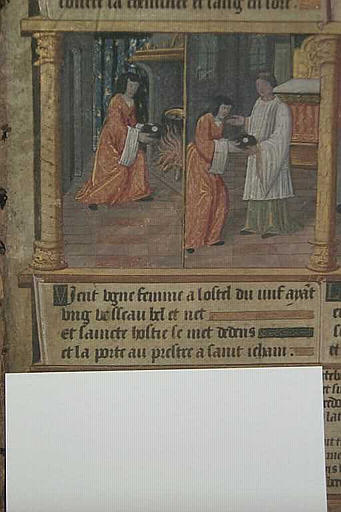 contre la cheminee et sang en sort.
Vient vgne femme a lostel du iuif ayāt
vng vesseau bel et net
et saincte hostie se met dedens
et la porte au prestre a saint iehain.